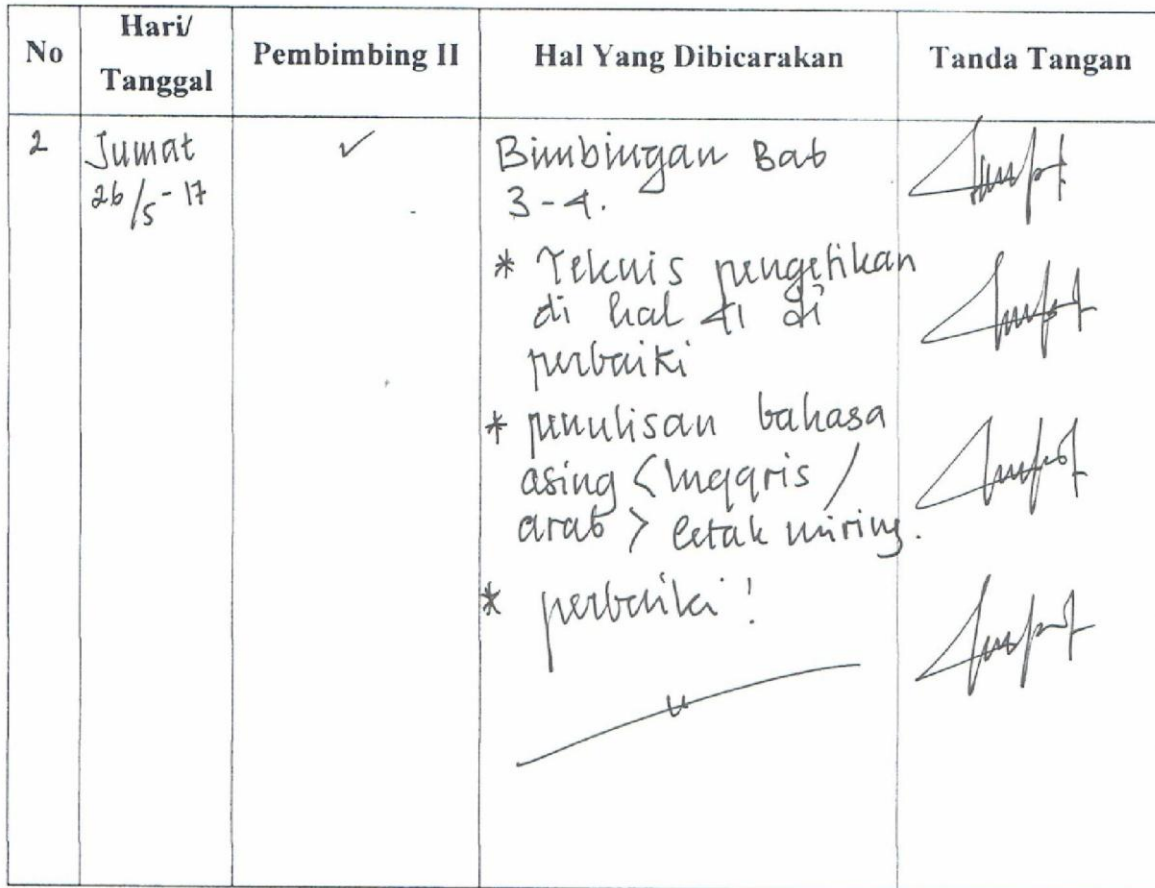 No
Hari/
Tanggal
Pembimbing II
Hal Yang Dibicarakan
Tanda Tangan
2
Jumat
26/5-17
Bimbingan Bab
3-4.
* Teknis pengetikan
di hal 41 di
perbaiki
* penulisan bahasa
asing <Inggris /
arab> cetak miring.
* perbaiki!